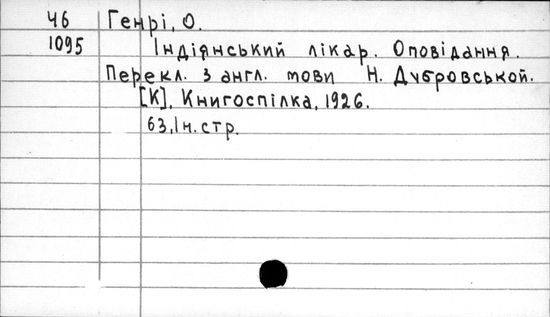 Ч6 Генрі, О.
1095 Індіянський лікар. Оповідання.
Перекл. з англ. мови Н. Дубровської.
[К], Книгоспілка, 1926.
63, Ін. стр.